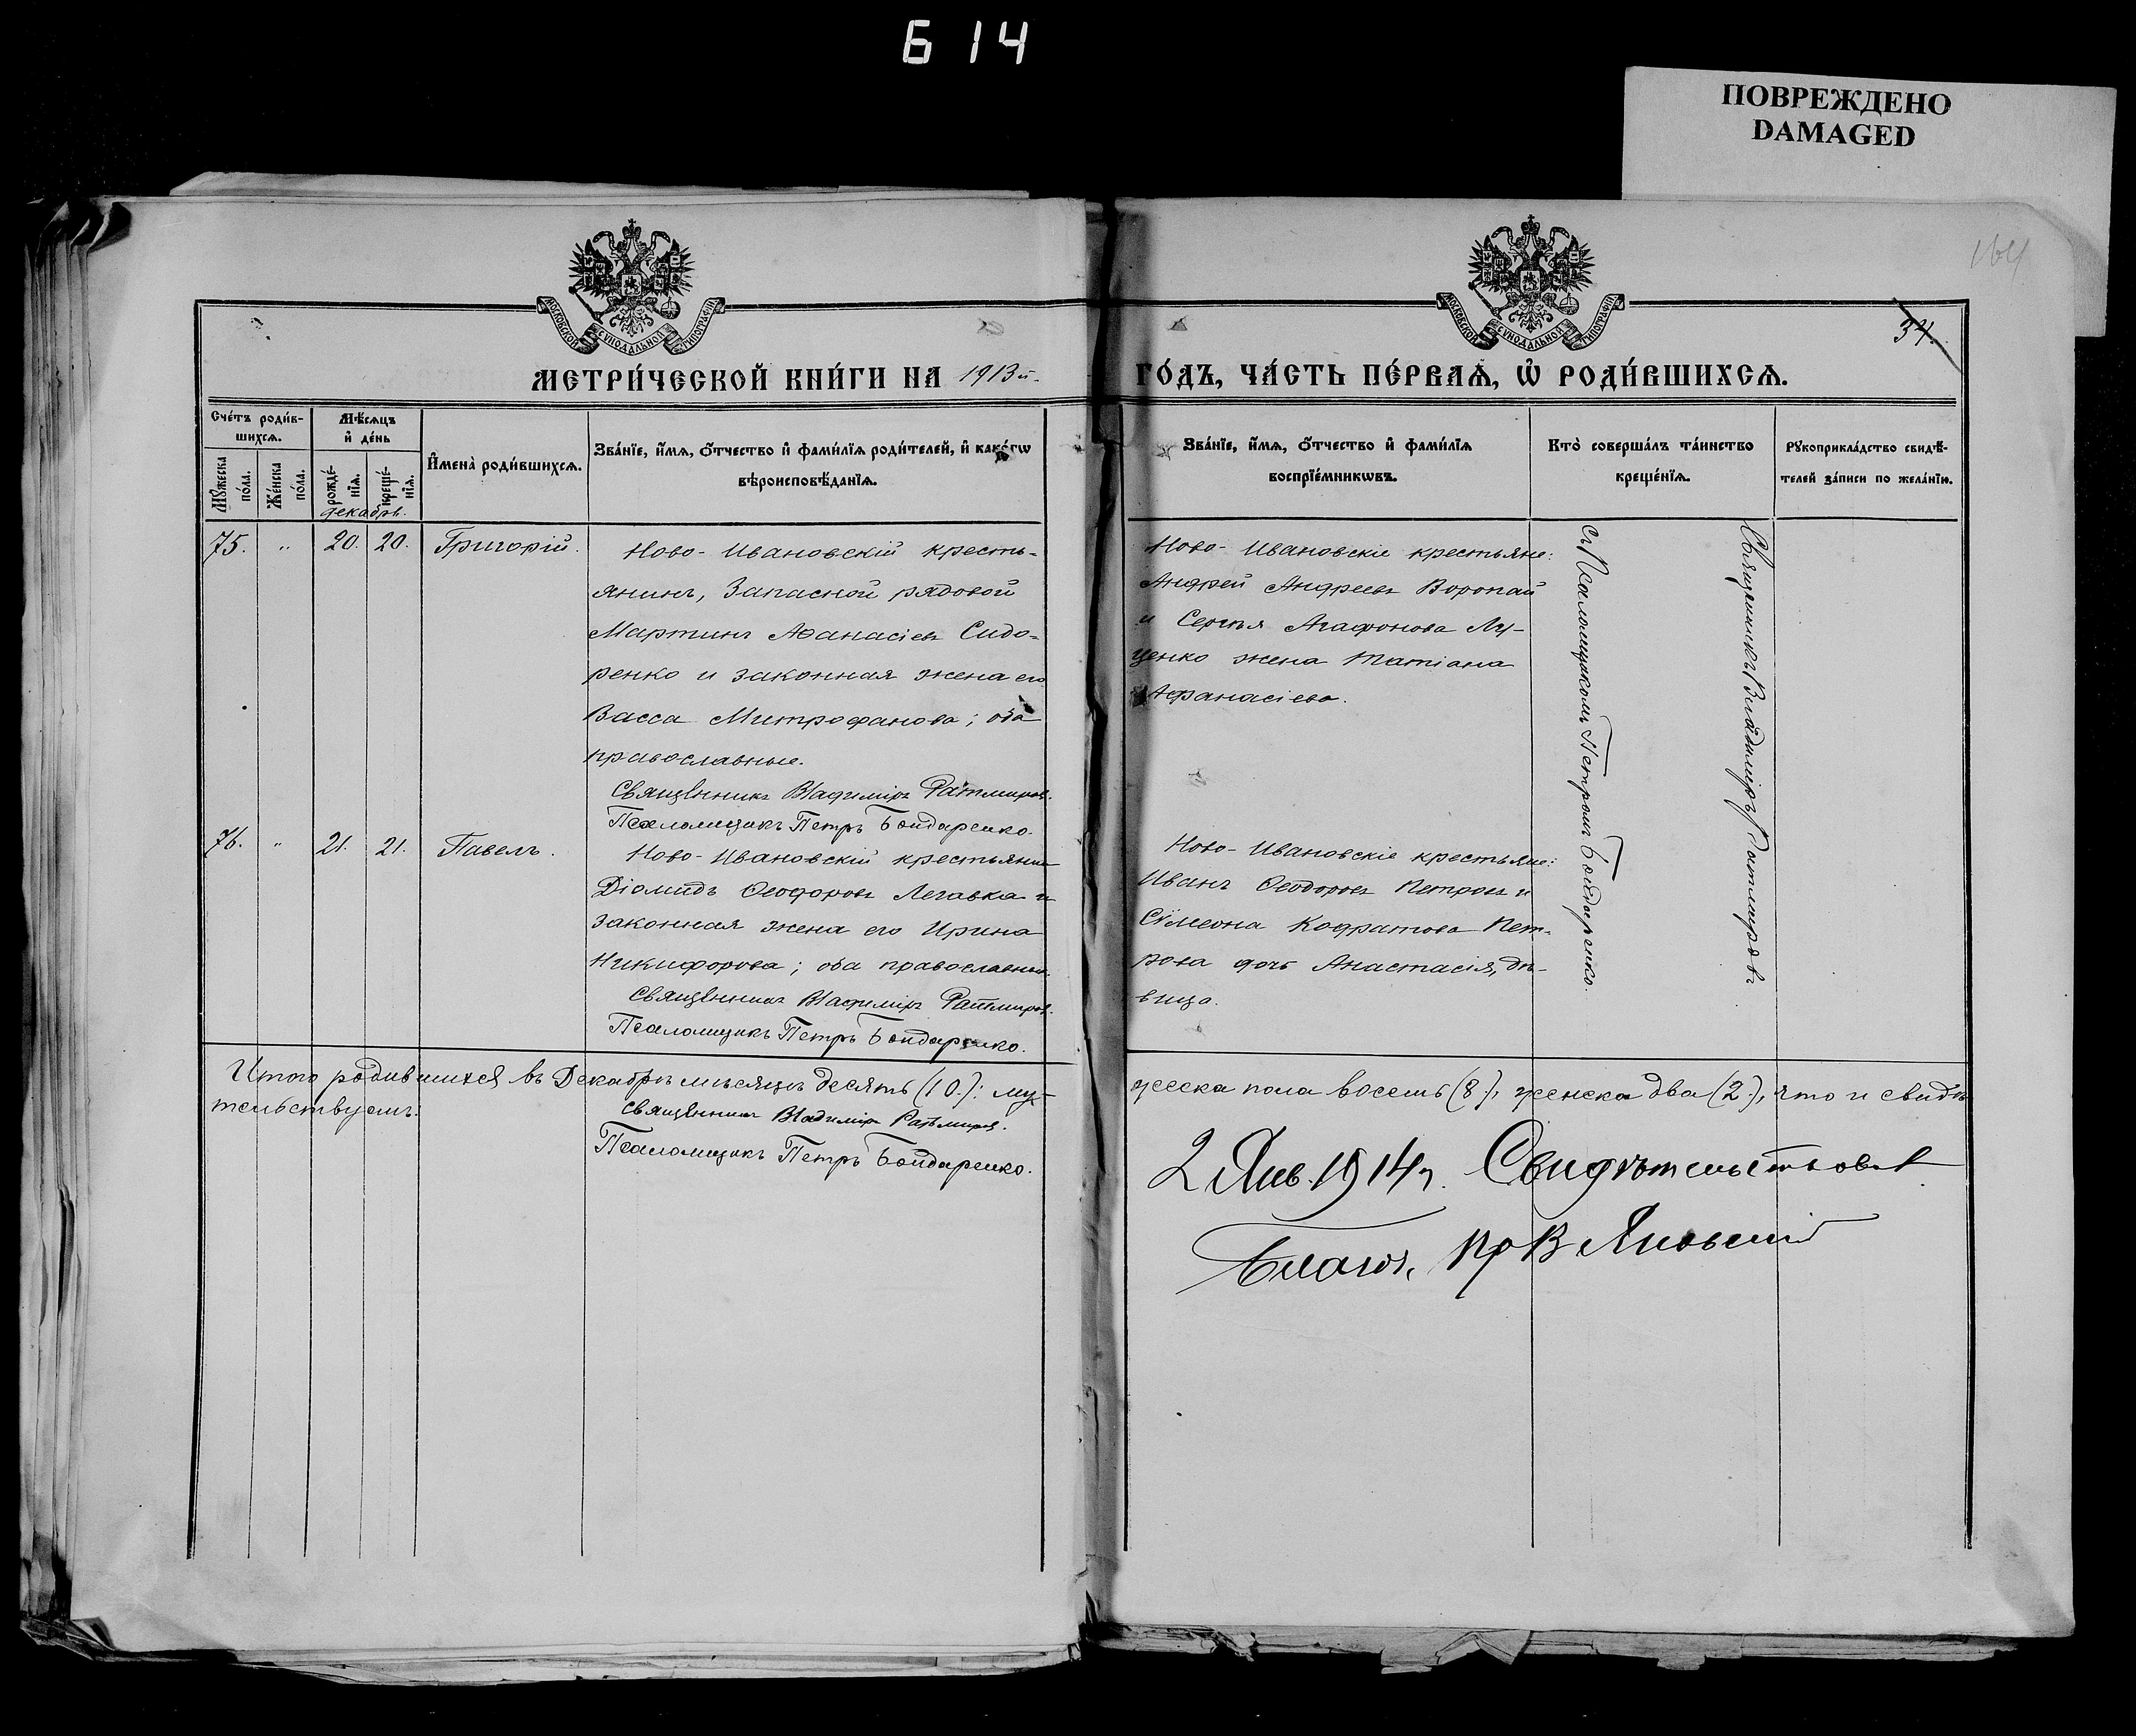 614
ПОВРЕЖДЕНО
DAMAGED
164
34.
МОСКОВСКОЙ СѴНОДАЛЬНОЙ ТИПОГРАФІИ
МОСКОВСКОЙ СѴНОДАЛЬНОЙ ТИПОГРАФІИ
МЕТРИ́ЧЕСКОЙ КНИ́ГИ НА 1913й.
ГО́ДЪ, ЧА́СТЬ ПЕ́РВАѦ, Ѡ҆ РОДИ́ВШИХСѦ.
Сче́тъ роди́в-
шихсѧ.
Мѣ́сѧцъ
и҆ де́нь
Мꙋ́жеска
по́ла.
Же́нска
по́ла.
рожде́-
нїѧ.
креще́-
нїѧ.
И҆мена̀ роди́вшихсѧ.
Зва́нїе, и҆́мѧ, о҆́тчество и҆ фами́лїѧ роди́телей, и҆ како́гѡ
вѣроисповѣ́данїѧ.
Зва́нїе, и҆́мѧ, о҆́тчество и҆ фами́лїѧ
воспрїе́мникѡвъ.
Кто̀ соверша́лъ та́инство
креще́нїѧ.
Рꙋкоприкла́дство свидѣ́-
телей за́писи по жела́нїю.
декабрь.
75. " 20. 20. Григорій.
Ново-Ивановскій кресть-
янинъ, запасной рядовой
Мартинъ Аѳанасіевъ Сидо-
ренко и законная жена его
Васса Митрофанова; оба
православные.
Священникъ Владиміръ Ратмировъ.
Псаломщикъ Петръ Бондаренко.
Ново-Ивановскіе крестьяне:
Андрей Андреевъ Воропай
и Сергѣя Агафонова Лу-
ценко жена Татіана
Афанасіева.
Священникъ Владиміръ Ратмировъ
съ Псаломщикомъ Петромъ Бондаренко.
76. " 21. 21. Павелъ.
Ново-Ивановскій крестьянинъ
Діомидъ Ѳеодоровъ Легавка и
законная жена его Ирина
Никифорова; оба православные.
Священникъ Владиміръ Ратмировъ.
Псаломщикъ Петръ Бондаренко.
Ново-Ивановскіе крестьяне:
Иванъ Ѳеодоровъ Петровъ и
Сѵмеона Кодратова Пет-
рова дочь Анастасія, дѣ-
вица.
Итого родившихся въ Декабрѣ мѣсяцѣ десять (10.): му-
жеска пола восемь (8.), женска два (2.), что и свидѣ-
тельствуемъ:
Священникъ Владиміръ Ратмировъ.
Псаломщикъ Петръ Бондаренко.
2 Янв. 1914 г. Свидѣтельствовал
Благоч. Пр В Яновскій